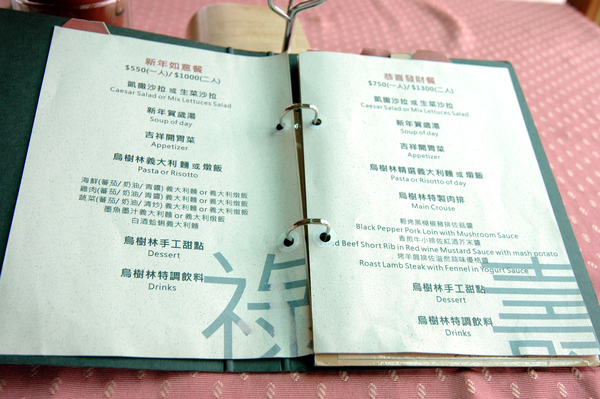 新年如意餐
$550(一人)/ $1000(二人)
凱撒沙拉 或 生菜沙拉
Caesar Salad or Mix Lettuces Salad
新年賀歲湯
Soup of day
吉祥開胃菜
Appetizer
烏樹林義大利麵 或 燉飯
Pasta or Risotto
海鮮(蕃茄/ 奶油/ 青醬) 義大利麵 or 義大利燉飯
雞肉(蕃茄/ 奶油/ 青醬) 義大利麵 or 義大利燉飯
蔬菜(蕃茄/ 奶油/ 清炒) 義大利麵 or 義大利燉飯
墨魚墨汁義大利麵 or 義大利燉飯
白酒蛤蜊義大利麵
烏樹林手工甜點
Dessert
烏樹林特調飲料
Drinks
祿
恭喜發財餐
$750(一人)/ $1300(二人)
凱撒沙拉 或 生菜沙拉
Caesar Salad or Mix Lettuces Salad
新年賀歲湯
Soup of day
吉祥開胃菜
Appetizer
烏樹林精選義大利麵 或 燉飯
Pasta or Risotto of day
烏樹林特製肉排
Main Crouse
輕烤黑椒椒豬排佐菇醬
Black Pepper Pork Loin with Mushroom Sauce
香煎牛小排佐紅酒芥末醬
d Beef Short Rib in Red wine Mustard Sauce with mash potato
烤羊肩排佐茴香優格醬
Roast Lamb Steak with Fennel in Yogurt Sauce
烏樹林手工甜點
Dessert
烏樹林特調飲料
Drinks